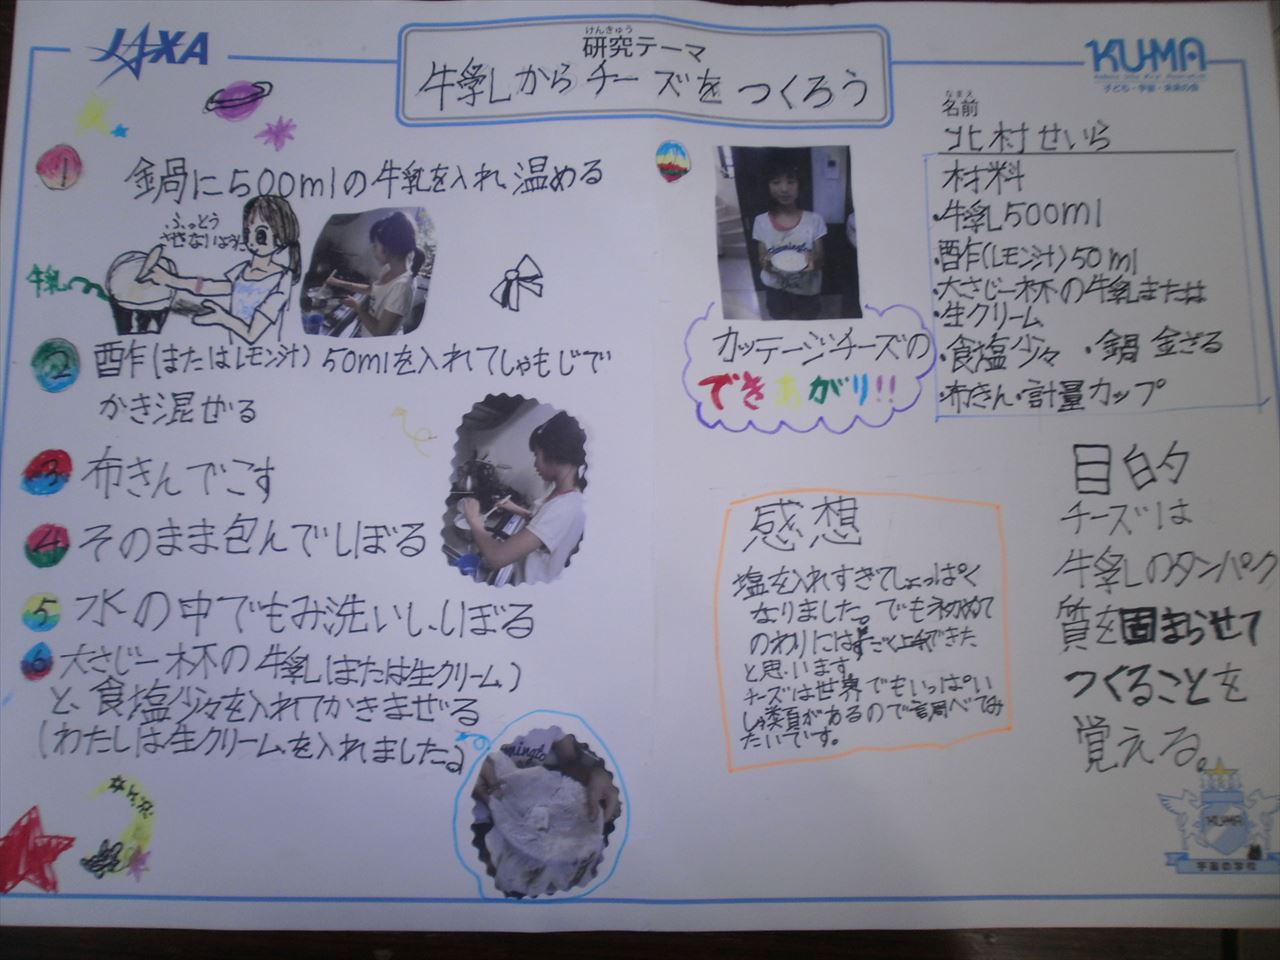 JAXA
けんきゅう
研究テーマ
牛乳からチーズをつくろう
KU-MA
子ども・宇宙・未来の会
なまえ
名前
北村せいら
1
鍋に500mlの牛乳を入れ温める
ふっとう
させないように
牛乳
2
酢(またはレモン汁)50mlを入れてしゃもじで
かき混ぜる
3 布きんでこす
4 そのまま包んでしぼる
5 水の中でもみ洗いし、しぼる
6 大さじ一杯の牛乳(または生クリーム)
と、食塩少々を入れてかきまぜる
(わたしは生クリームを入れました。)
カッテージチーズの
できあがり!!
材料
・牛乳500ml
・酢(レモン汁)50ml
・大さじ一杯の牛乳または
・生クリーム
・食塩少々 ・鍋 金ざる
・布きん・計量カップ
目的
チーズは
牛乳のタンパク
質を固まらせて
つくることを
覚える。
感想
塩を入れすぎてしょっぱく
なりました。でも初めて
のわりにはすごく上手できた
と思います。
チーズは世界でもいっぱい
しゅ類があるので調べてみ
たいです。
KUMA
宇宙の学校